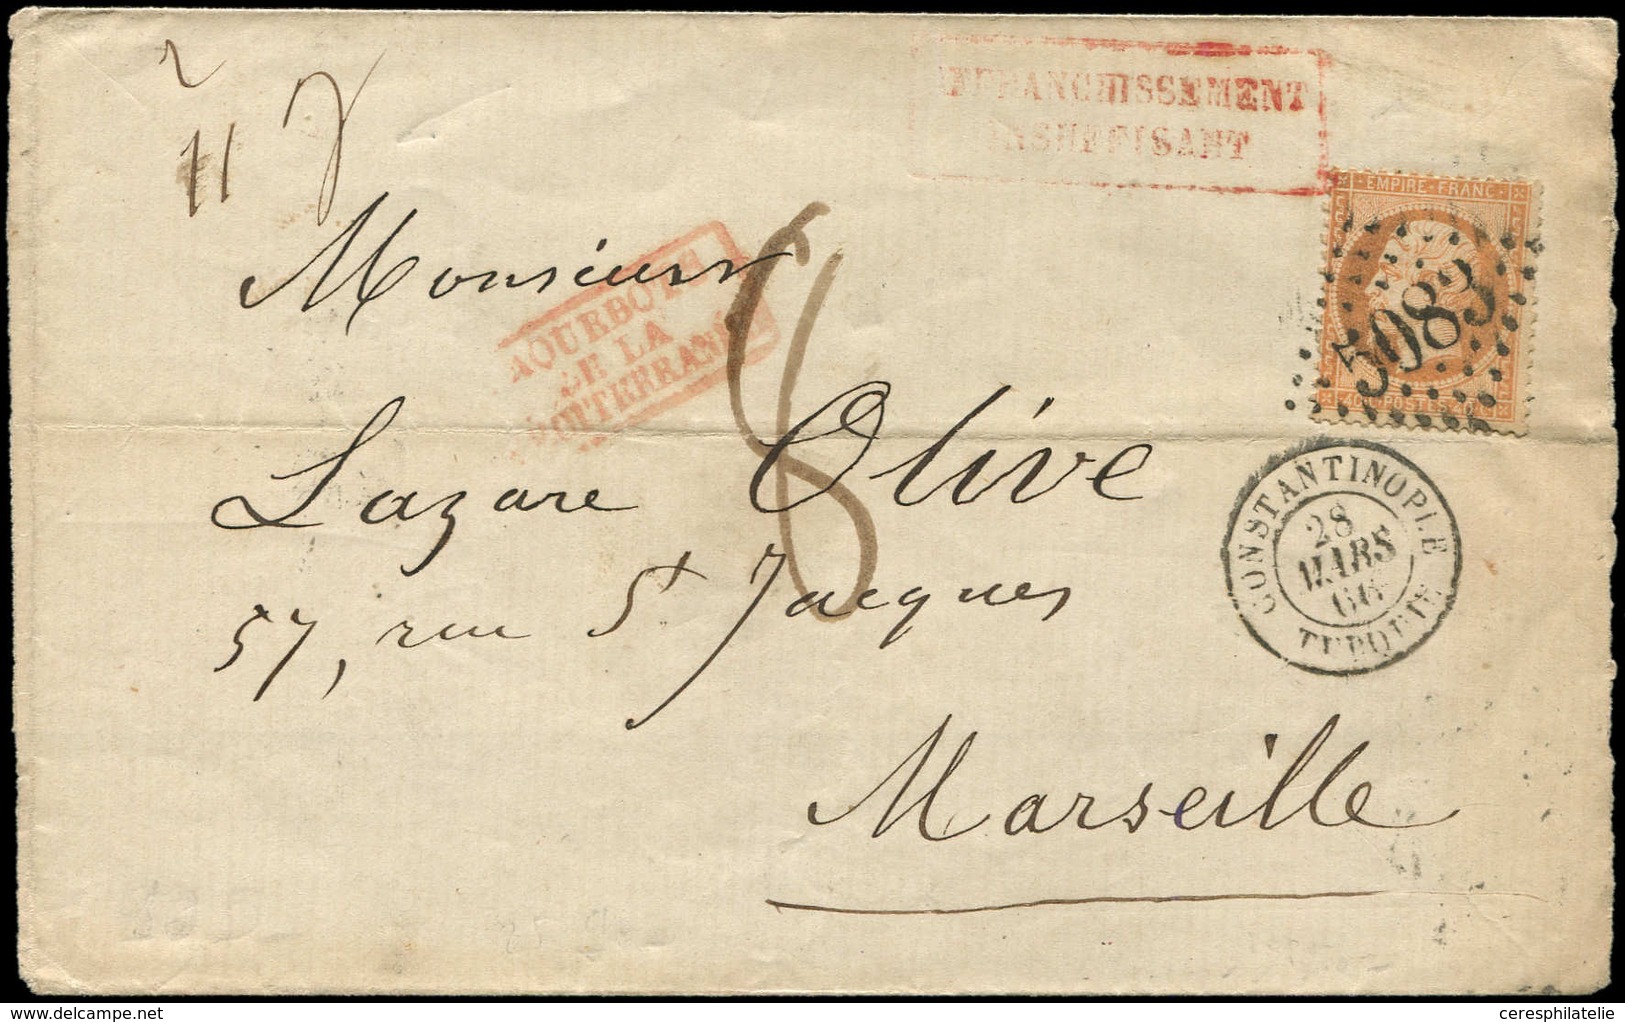 11
AFFRANCHISSEMENT
INSUFFISANT
EMPIRE-FRANC
5083
40 C POSTES 40 C
PAQUEBOTS
DE LA
MÉDITERRANÉE
8
Monsieur
Lazare Olive
57, rue St Jacques
Marseille
CONSTANTINOPLE
28
MARS
66
TURQUIE
delcampe.net
ceresphilatelie